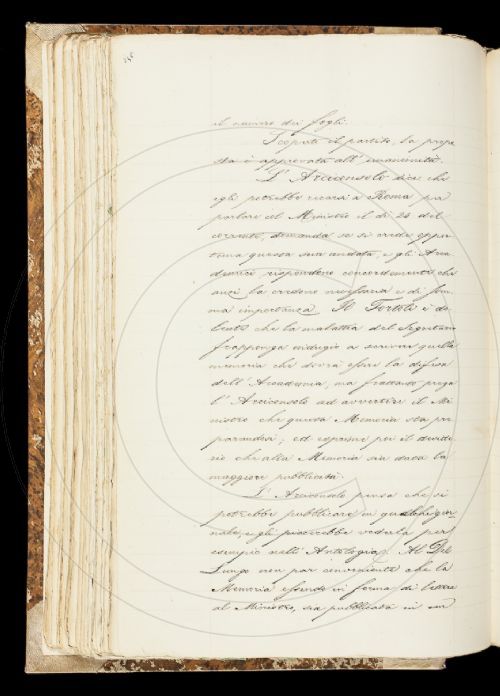 il numero dei fogli.
Scoperto il partito, la propo
sta è approvata all' unanimità.
L' Arciconsolo dice che
egli potrebbe recarsi a Roma per
parlare col Ministro il dì 24 del
corrente, domanda se si crede oppor
tuna questa sua andata, e gli Acca
demici rispondono concordemente che
anzi la credono necessaria e di som
ma importanza. Il Tortoli è do
lente che la malattia del Segretario
frapponga indugio a scrivere quella
memoria che dovrà essere la difesa
dell' Accademia, ma frattanto prega
l' Arciconsolo ad avvertire il Mi
nistro che questa Memoria sta pre
parandosi; ed esprime poi il deside
rio che alla Memoria sia data la
maggiore pubblicità.
L' Arciconsolo pensa che si
potrebbe pubblicare in qualche gior
nale, e gli piacerebbe vederla per
esempio nell' Antologia. Al Del
Lungo non par conveniente che la
Memoria essendo in forma di lettera
al Ministro, sia pubblicata in un